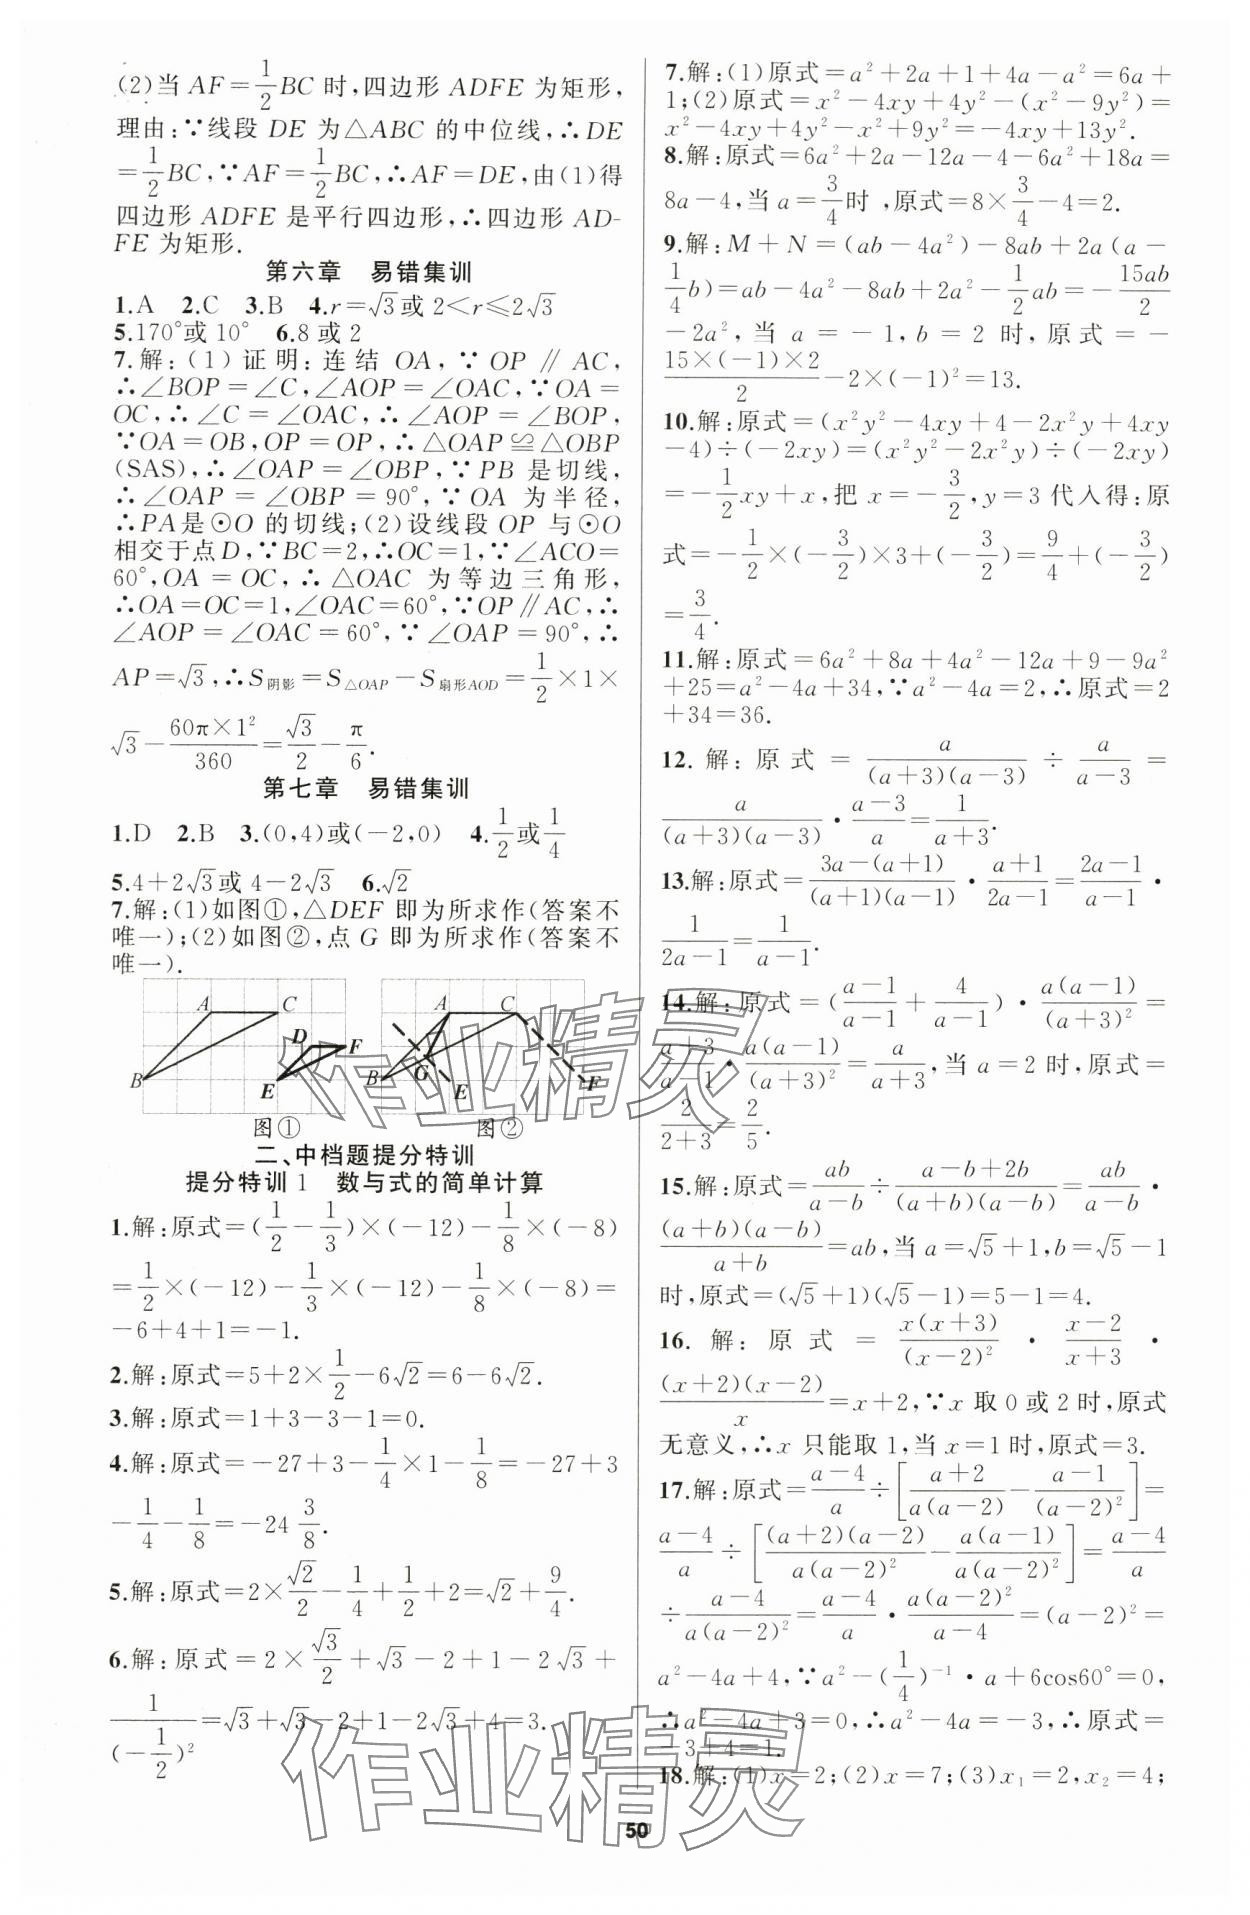 (2)当 AF=1/2BC 时,四边形 ADFE 为矩形,
理由:∵线段 DE 为△ABC 的中位线,∴DE
=1/2BC,∵AF=1/2BC,∴AF=DE,由(1)得
四边形 ADFE 是平行四边形,∴四边形 AD-
FE 为矩形.
第六章 易错集训
1.A 2.C 3.B 4.r=√3或 2<r≤2√3
5.170°或 10° 6.8或 2
7.解:(1)证明:连结 OA,∵OP∥AC,
∴∠BOP=∠C,∠AOP=∠OAC,∵OA=
OC,∴∠C=∠OAC,∴∠AOP=∠BOP,
∵OA=OB,OP=OP,∴△OAP≌△OBP
(SAS),∴∠OAP=∠OBP,∵PB 是切线,
∴∠OAP=∠OBP=90°,∵OA 为半径,
∴PA是⊙O 的切线;(2)设线段 OP 与⊙O
相交于点D,∵BC=2,∴OC=1,∵∠ACO=
60°,OA=OC,∴△OAC 为等边三角形,
∴OA=OC=1,∠OAC=60°,∵OP∥AC,∴
∠AOP=∠OAC=60°,∵∠OAP=90°,∴
AP=√3,∴S阴影=S△OAP-S扇形AOD=1/2×1×
√3-60π×1²/360=√3/2-π/6.
第七章 易错集训
1.D 2.B 3.(0,4)或(-2,0) 4.1/2或1/4
5.4+2√3或 4-2√3 6.√2
7.解:(1)如图①,△DEF 即为所求作(答案不
唯一);(2)如图②,点 G 即为所求作(答案不
唯一).
A C D F B E
A C G B E F
图① 图②
二、中档题提分特训
提分特训1 数与式的简单计算
1.解:原式=(1/2-1/3)×(-12)-1/8×(-8)
=1/2×(-12)-1/3×(-12)-1/8×(-8)=
-6+4+1=-1.
2.解:原式=5+2×1/2-6√2=6-6√2.
3.解:原式=1+3-3-1=0.
4.解:原式=-27+3-1/4×1-1/8=-27+3
-1/4-1/8=-24 3/8.
5.解:原式=2×√2/2-1/4+1/2+2=√2+9/4.
6.解:原式=2×√3/2+√3-2+1-2√3+
1/(-1/2)²=√3+√3-2+1-2√3+4=3.
7.解:(1)原式=a²+2a+1+4a-a²=6a+
1;(2)原式=x²-4xy+4y²-(x²-9y²)=
x²-4xy+4y²-x²+9y²=-4xy+13y².
8.解:原式=6a²+2a-12a-4-6a²+18a=
8a-4,当 a=3/4时,原式=8×3/4-4=2.
9.解:M+N=(ab-4a²)-8ab+2a(a-
1/4b)=ab-4a²-8ab+2a²-1/2ab=-15ab/2
-2a²,当 a=-1,b=2 时,原式=-
15×(-1)×2/2-2×(-1)²=13.
10.解:原式=(x²y²-4xy+4-2x²y+4xy
-4)÷(-2xy)=(x²y²-2x²y)÷(-2xy)
=-1/2xy+x,把 x=-3/2,y=3代入得:原
式=-1/2×(-3/2)×3+(-3/2)=9/4+(-3/2)
=3/4.
11.解:原式=6a²+8a+4a²-12a+9-9a²
+25=a²-4a+34,∵a²-4a=2,∴原式=2
+34=36.
12.解:原式=a/(a+3)(a-3)÷a/(a-3)=
a/(a+3)(a-3)·(a-3)/a=1/(a+3).
13.解:原式=3a-(a+1)/(a+1)(a-1)·(a+1)/(2a-1)=(2a-1)/(a-1)·
1/(2a-1)=1/(a-1).
14.解:原式=((a-1)/(a-1)+4/(a-1))·a(a-1)/(a+3)²=
(a+3)/(a-1)·a(a-1)/(a+3)²=a/(a+3),当 a=2 时,原式=
2/(2+3)=2/5.
15.解:原式=ab/(a-b)÷(a-b+2b)/(a+b)(a-b)=ab/(a-b)·
(a+b)(a-b)/(a+b)=ab,当 a=√5+1,b=√5-1
时,原式=(√5+1)(√5-1)=5-1=4.
16.解:原式=x(x+3)/(x-2)²·(x-2)/(x+3)·
(x+2)(x-2)/x=x+2,∵x 取 0 或 2 时,原式
无意义,∴x 只能取 1,当 x=1时,原式=3.
17.解:原式=(a-4)/a÷[(a+2)/a(a-2)-(a-1)/(a-2)²]=
(a-4)/a÷[(a+2)(a-2)/a(a-2)²-a(a-1)/a(a-2)²]=(a-4)/a
÷(a-4)/a(a-2)²=(a-4)/a·a(a-2)²/(a-4)=(a-2)²=
a²-4a+4,∵a²-(1/4)⁻¹·a+6cos60°=0,
∴a²-4a+3=0,∴a²-4a=-3,∴原式=
-3+4=1.
18.解:(1)x=2;(2)x=7;(3)x₁=2,x₂=4;
50
作业精灵
作业精灵